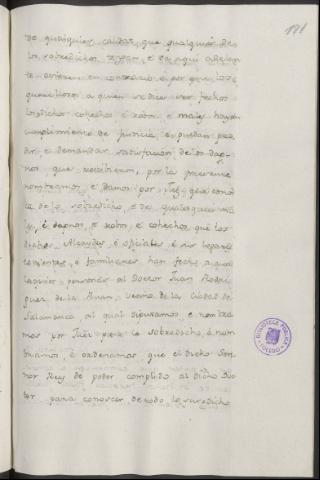 191
de qualquier calidad que qualquier de
los sobredichos ayan, e de aqui adelan
te ovieren en contrario e por que los
querellosos a quien se dice ser fechos
los dichos cohechos e robos, e males hayan
cumplimiento de justicia, e puedan pe
dir e demandar satisfacion de los dap
nos que recibieron, por la presente
nombramos, e damos por Juez que conoz
ca de lo sobredicho, e de qualesquier ma
les, e dapnos, e robos, e cohechos que los
dichos Alcaydes, e oficiales e sus lugares
tenientes, e familiares han fecho a qua
lesquier personas al Doctor Juan Rodri
guez de la vecino de la Ciudad de
Salamanca al qual diputamos, e nombra
mos por Juez para lo sobredicho, e nom
bramos, e ordenamos, que el dicho Sen
nor Rey de poder complido al dicho Doc
tor para conoscer de todo lo susodicho
BIBLIOTECA PUBLICA
TOLEDO